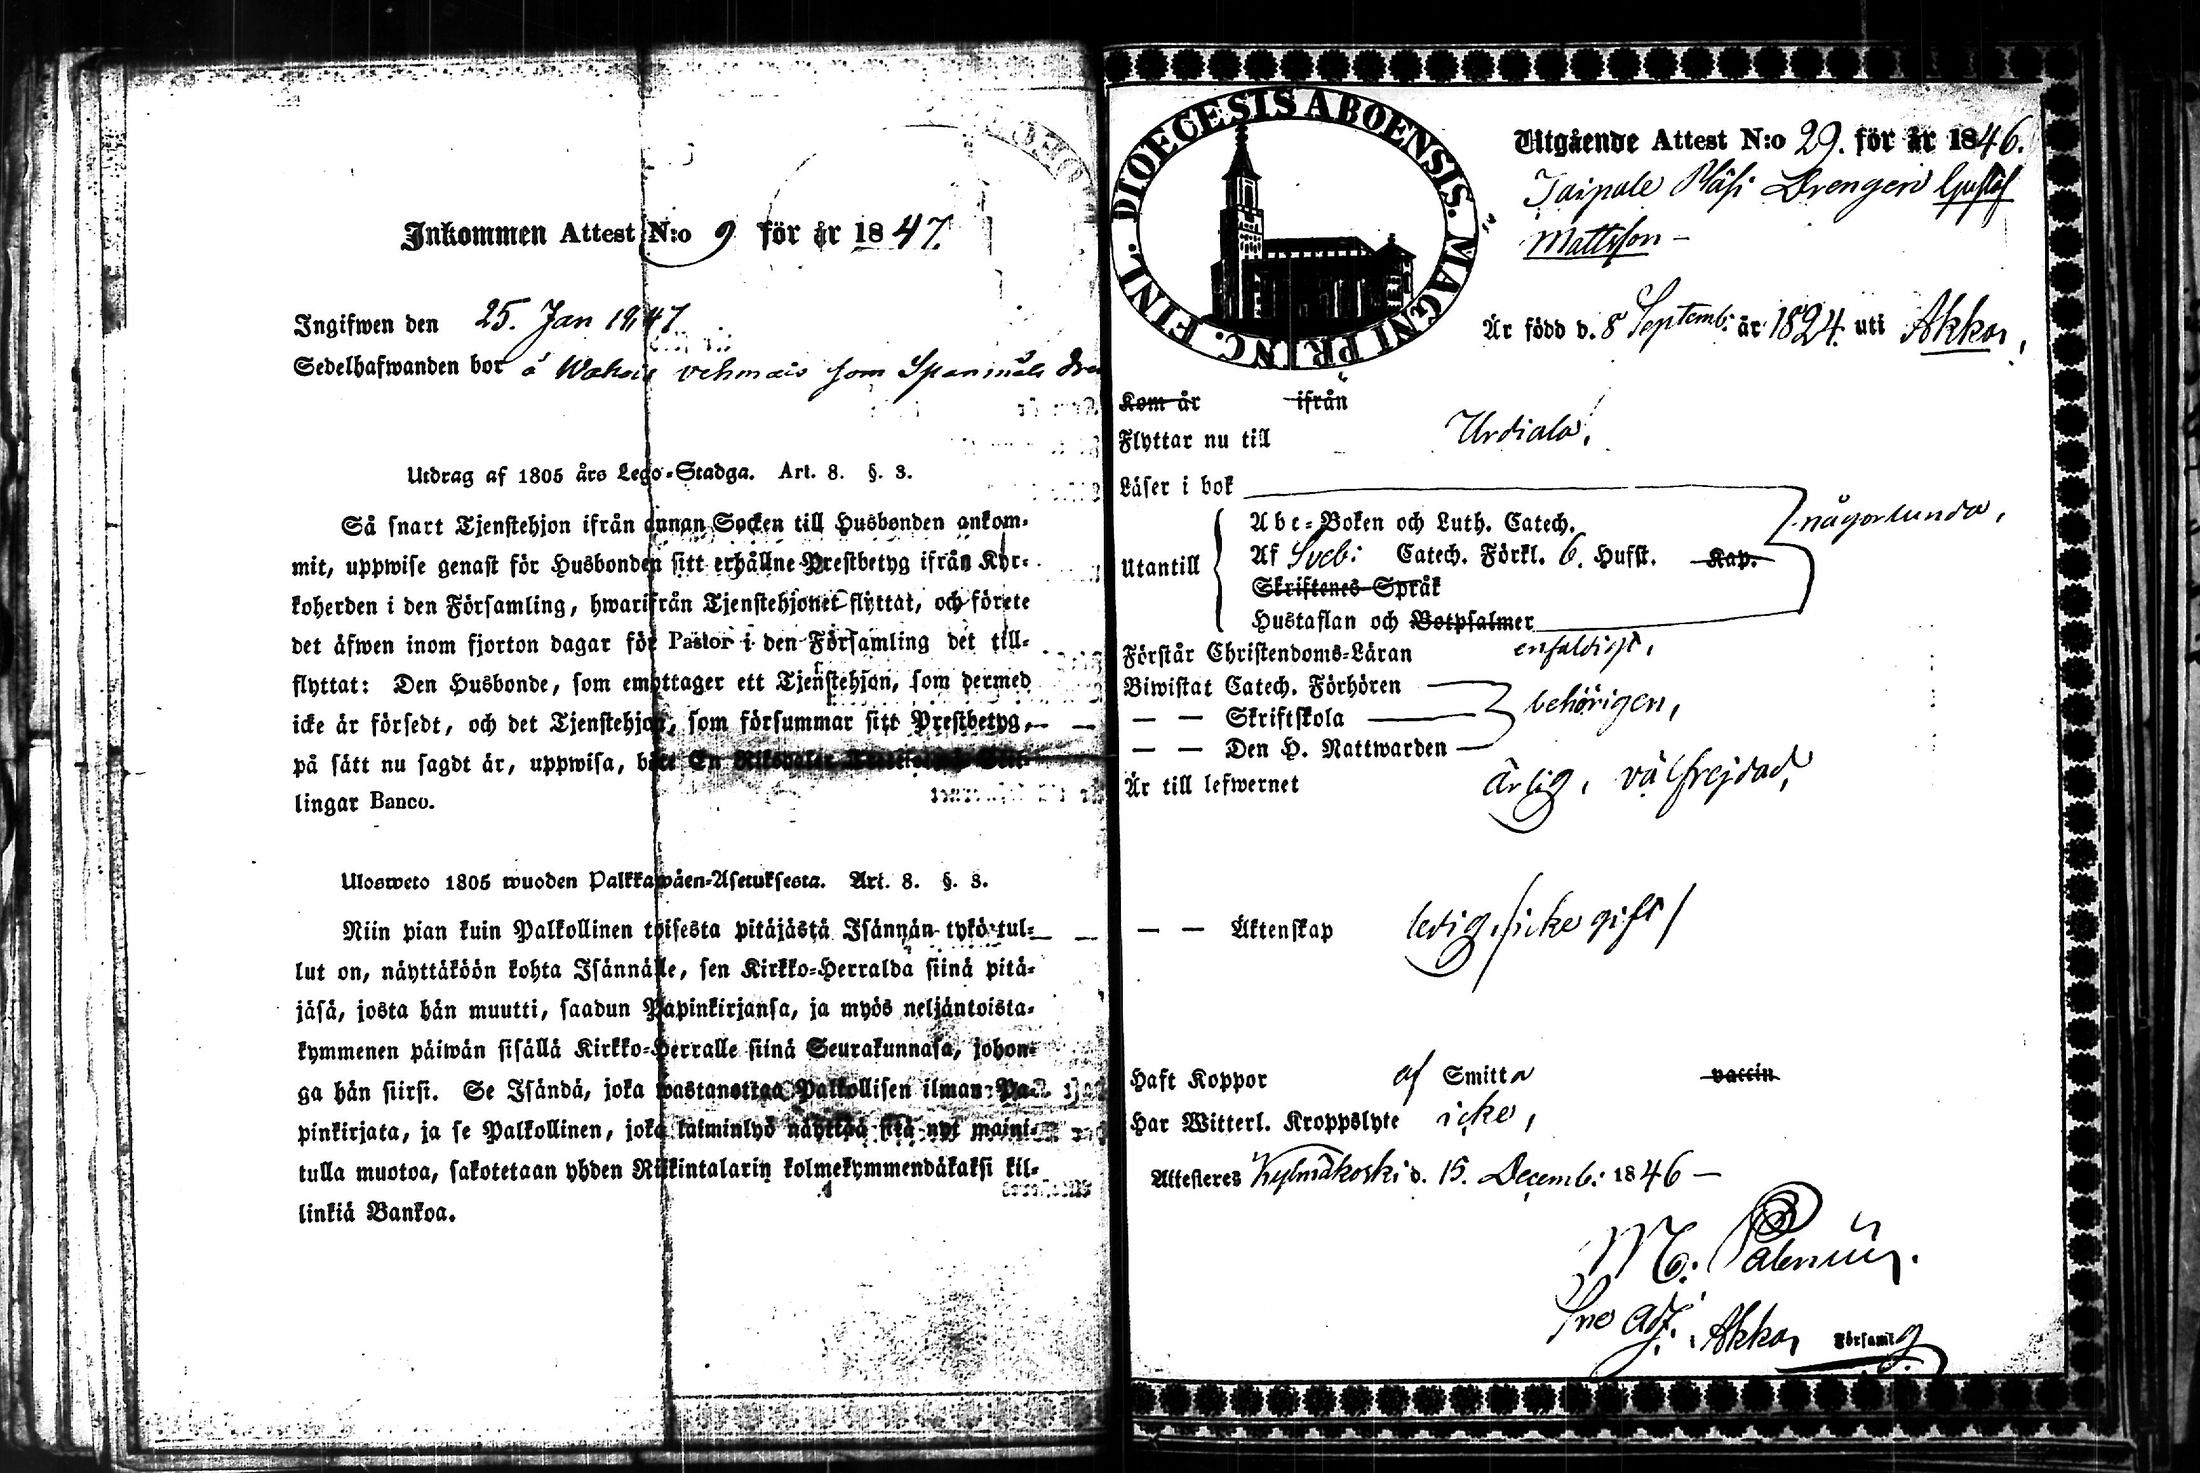 Inkommen Attest N:o 9 för år 1847.
Ingifwen den 25. Jan 1847
Sedelhafwanden bor å vehmais som
Utdrag af 1805 års Lego-Stadga. Art. 8. §. 3.
Så snart Tjenstehjon ifrån annan Socken till Husbonden ankom-
mit, uppwise genast för Husbonden sitt erhållne Prestbetyg ifrån Kyr-
koherden i den Församling, hwarifrån Tjenstehjonet flyttat, och förete
det äfwen inom fjorton dagar för Pastor i den Församling det till-
flyttat: Den Husbonde, som emottager ett Tjenstehjon, som dermed
icke är försedt, och det Tjenstehjon, som försummar sitt Prestbetyg,
på sätt nu sagdt är, uppwisa, böte En
lingar Banco.
Ulosweto 1805 wuoden Palkkawäen-Asetuksesta. Art. 8. §. 3.
Niin pian kuin Palkollinen toisesta pitäjästä Isännän tykö tul-
lut on, näyttäköön kohta Isännälle, sen Kirkko-Herralda siinä pitä-
jäsä, josta hän muutti, saadun Papinkirjansa, ja myös neljäntoista-
kymmenen päiwän sisällä Kirkko-Herralle siinä Seurakunnasa, johon-
ga hän siirsi. Se Isändä, joka wastanottaa Palkollisen ilman Pa-
pinkirjata, ja se Palkollinen, joka laiminlyö näyttää sitä nyt maini-
tulla muotoa, sakotetaan yhden Riikintalarin kolmekymmendäkaksi kil-
linkiä Bankoa.
DIOECESIS ABOENSIS. MAGNI PRINC. FINL.
Utgående Attest N:o 29. för år 1846.
Taipale Drengen Gustaf
Mattsson
Är född d. 8 Septemb: år 1824. uti Akkas,
Kom år ifrån
Flyttar nu till Urdiala,
Läser i bok
någorlunda,
Utantill
Abc-Boken och Luth. Catech.
Af Sveb: Catech. Förkl. 6. Hufst. Kap.
Skriftenes Språk
Hustaflan och Botpsalmer
Förstår Christendoms-Läran enfaldigt,
Biwistat Catech. Förhören
— — Skriftskola behörigen,
— — Den H. Nattwarden
Är till lefwernet ärlig, välfrejdad,
— — Äktenskap ledig, /icke gift/
Haft Koppor af Smitta vaccin
Har Witterl. Kroppslyte icke,
Attesteres Kylmäkoski d. 15. Decemb: 1846 —
M: Palenius.
Adj. i Akkas Församlg.